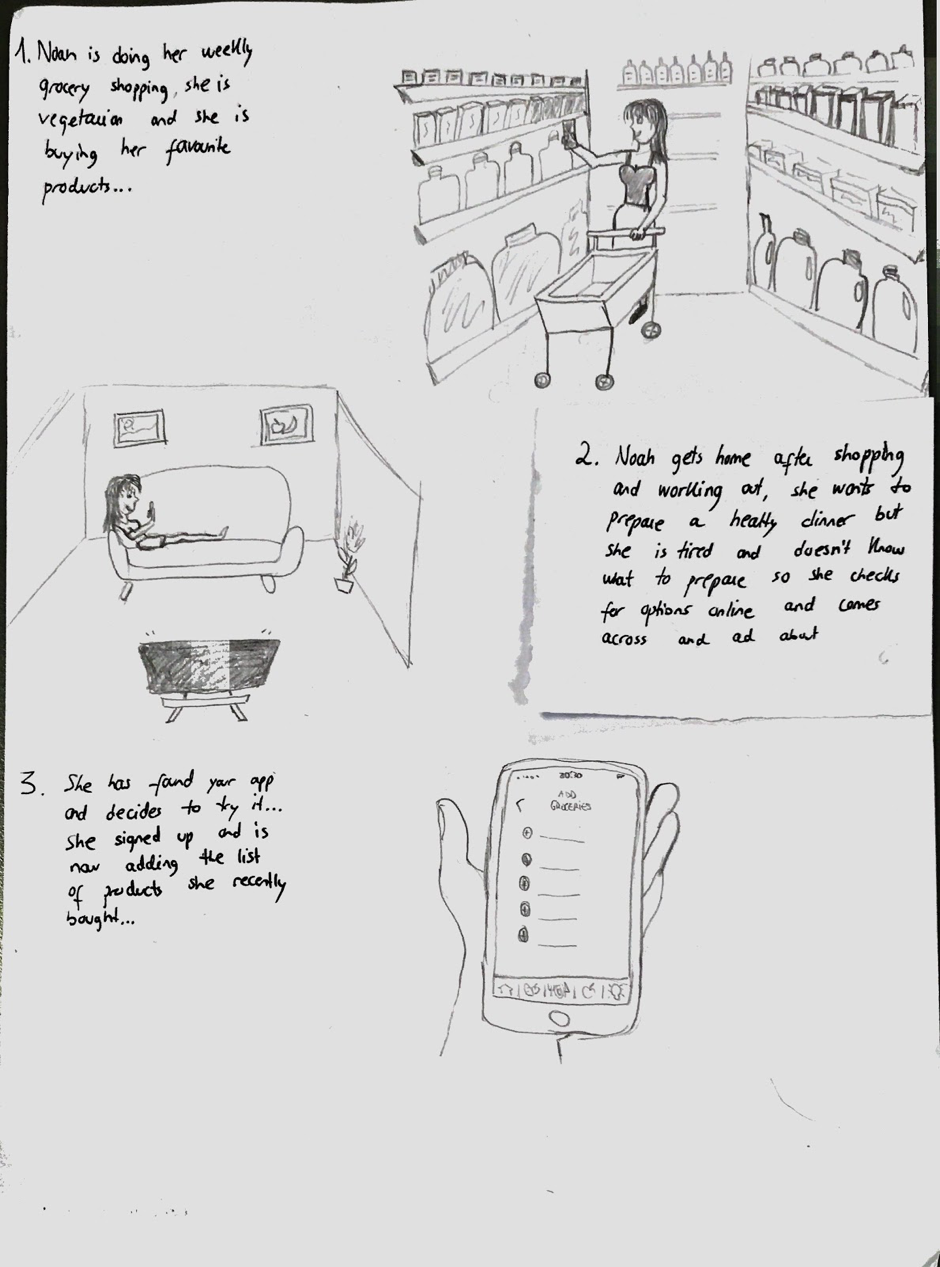 1. Noah is doing her weekly
grocery shopping, she is
vegetarian and she is
buying her favourite
products...
2. Noah gets home after shopping
and working out, she wants to
prepare a healty dinner but
she is tired and doesn't know
what to prepare so she checks
for options online and comes
across and ad about
3. She has found your app
and decides to try it...
She signed up and is
now adding the list
of products she recently
bought...
20:30
<
ADD
GROCERIES